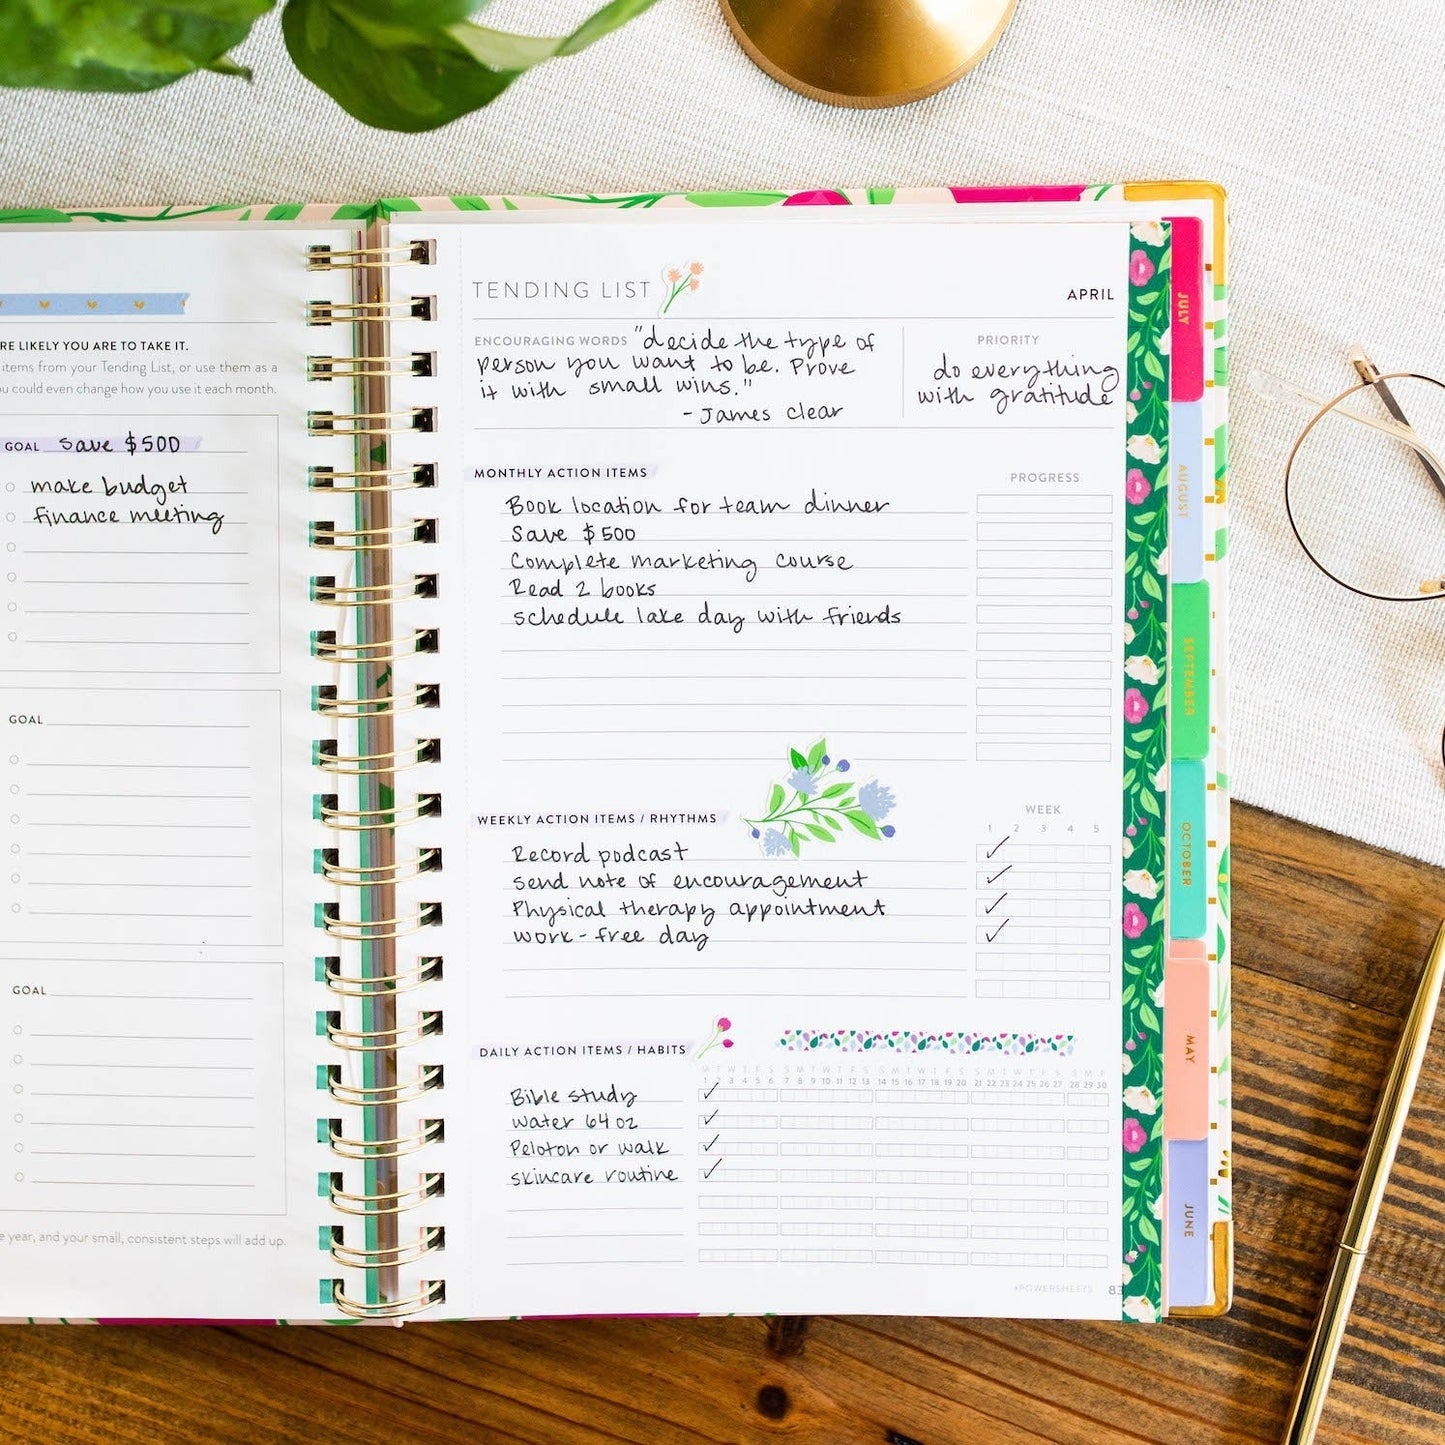 RE LIKELY YOU ARE TO TAKE IT.
items from your Tending List, or use them as a
ou could even change how you use it each month.
GOAL save $500
make budget
finance meeting
GOAL
GOAL
e year, and your small, consistent steps will add up.
TENDING LIST
APRIL
ENCOURAGING WORDS "decide the type of
person you want to be. Prove
it with small wins."
- James Clear
PRIORITY
do everything
with gratitude
MONTHLY ACTION ITEMS
PROGRESS
Book location for team dinner
Save $500
Complete marketing course
Read 2 books
schedule lake day with friends
WEEKLY ACTION ITEMS / RHYTHMS
WEEK
1 2 3 4 5
Record podcast
Send note of encouragement
Physical therapy appointment
work-free day
DAILY ACTION ITEMS / HABITS
M T W T F S S M T W T F S S M T W T F S S M T W T F S S M T W T F
1 2 3 4 5 6 7 8 9 10 11 12 13 14 15 16 17 18 19 20 21 22 23 24 25 26 27 28 29 30
Bible study
water 64 oz
Peloton or walk
skincare routine
#POWERSHEETS 83
JULY
AUGUST
SEPTEMBER
OCTOBER
MAY
JUNE